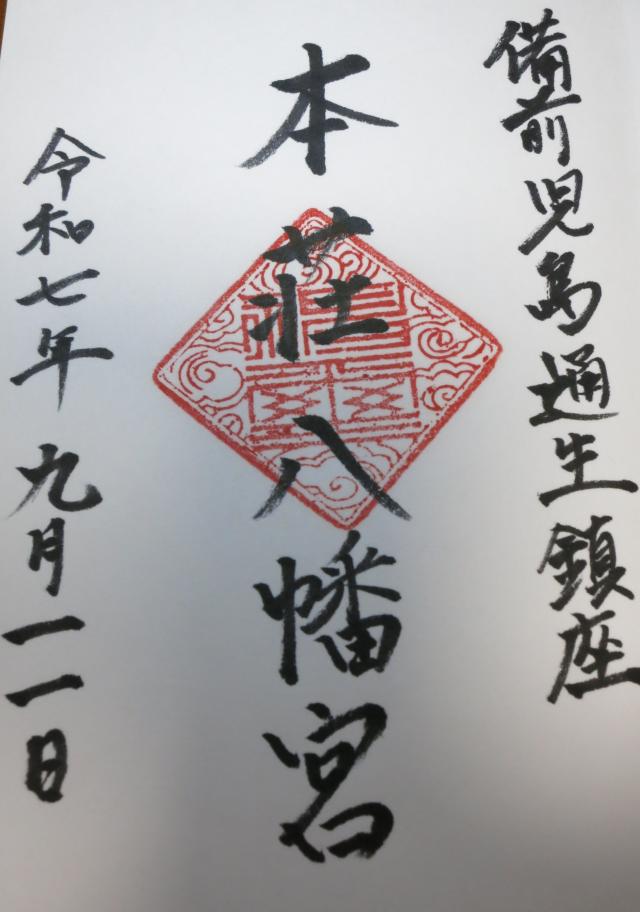 備前児島通生鎮座
本荘八幡宮
令和七年九月一一日